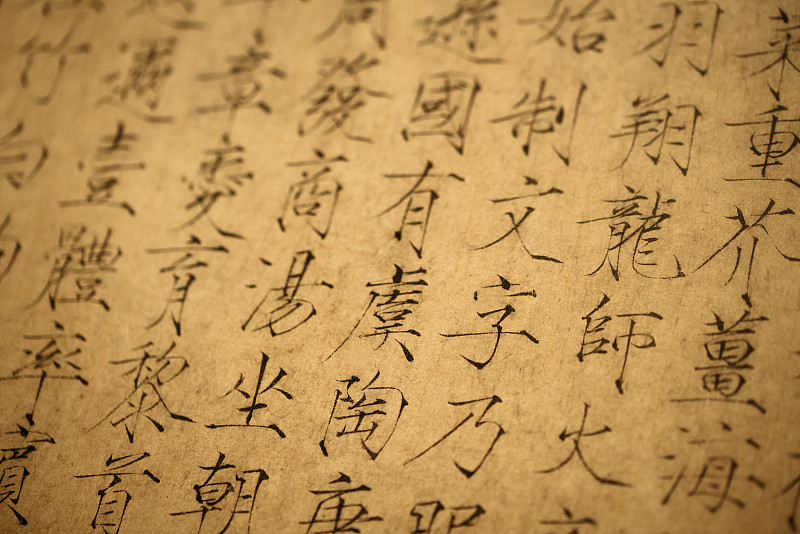 菜重芥薑海
羽翔龍師火
始制文字乃
遜國有虞陶唐
周發商湯坐朝
章愛育黎首
邇壹體率賓
竹白